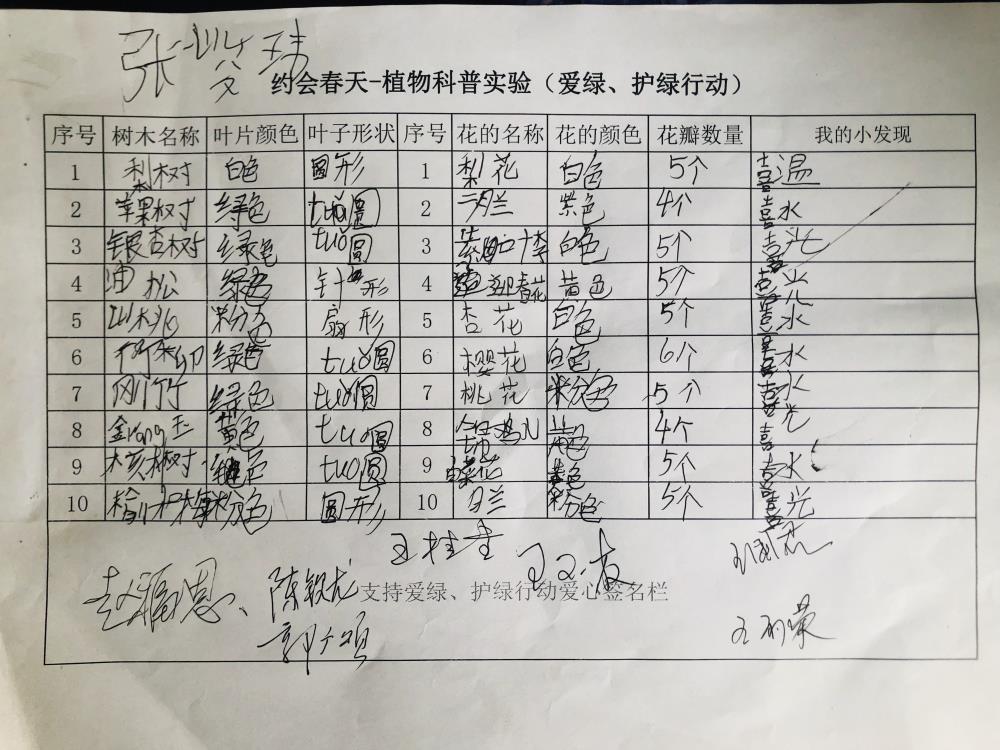 张贤玮
约会春天-植物科普实验（爱绿、护绿行动）
序号 树木名称 叶片颜色 叶子形状 序号 花的名称 花的颜色 花瓣数量 我的小发现
1 梨树 白色 圆形 1 梨花 白色 5个 喜温
2 苹果树 绿色 tuǒ圆 2 兰 紫色 4个 喜水
3 银杏树 绿色 tuǒ圆 3 李 白色 5个 喜光
4 油松 绿色 针形 4 迎春花 黄色 5个 喜光
5 山桃 粉色 扇形 5 杏花 白色 5个 喜水
6 绿色 tuǒ圆 6 樱花 白色 6个 喜水
7 刚竹 绿色 tuǒ圆 7 桃花 粉色 5个 喜水
8 金rong玉 黄色 tuǒ圆 8 黄色 4个 喜光
9 核桃树 绿色 tuǒ圆 9 菜花 黄色 5个 喜水
10 粉色 圆形 10 兰 粉色 5个 喜光
王桂
赵雅恩、陈铁龙 支持爱绿、护绿行动爱心签名栏
郭颂